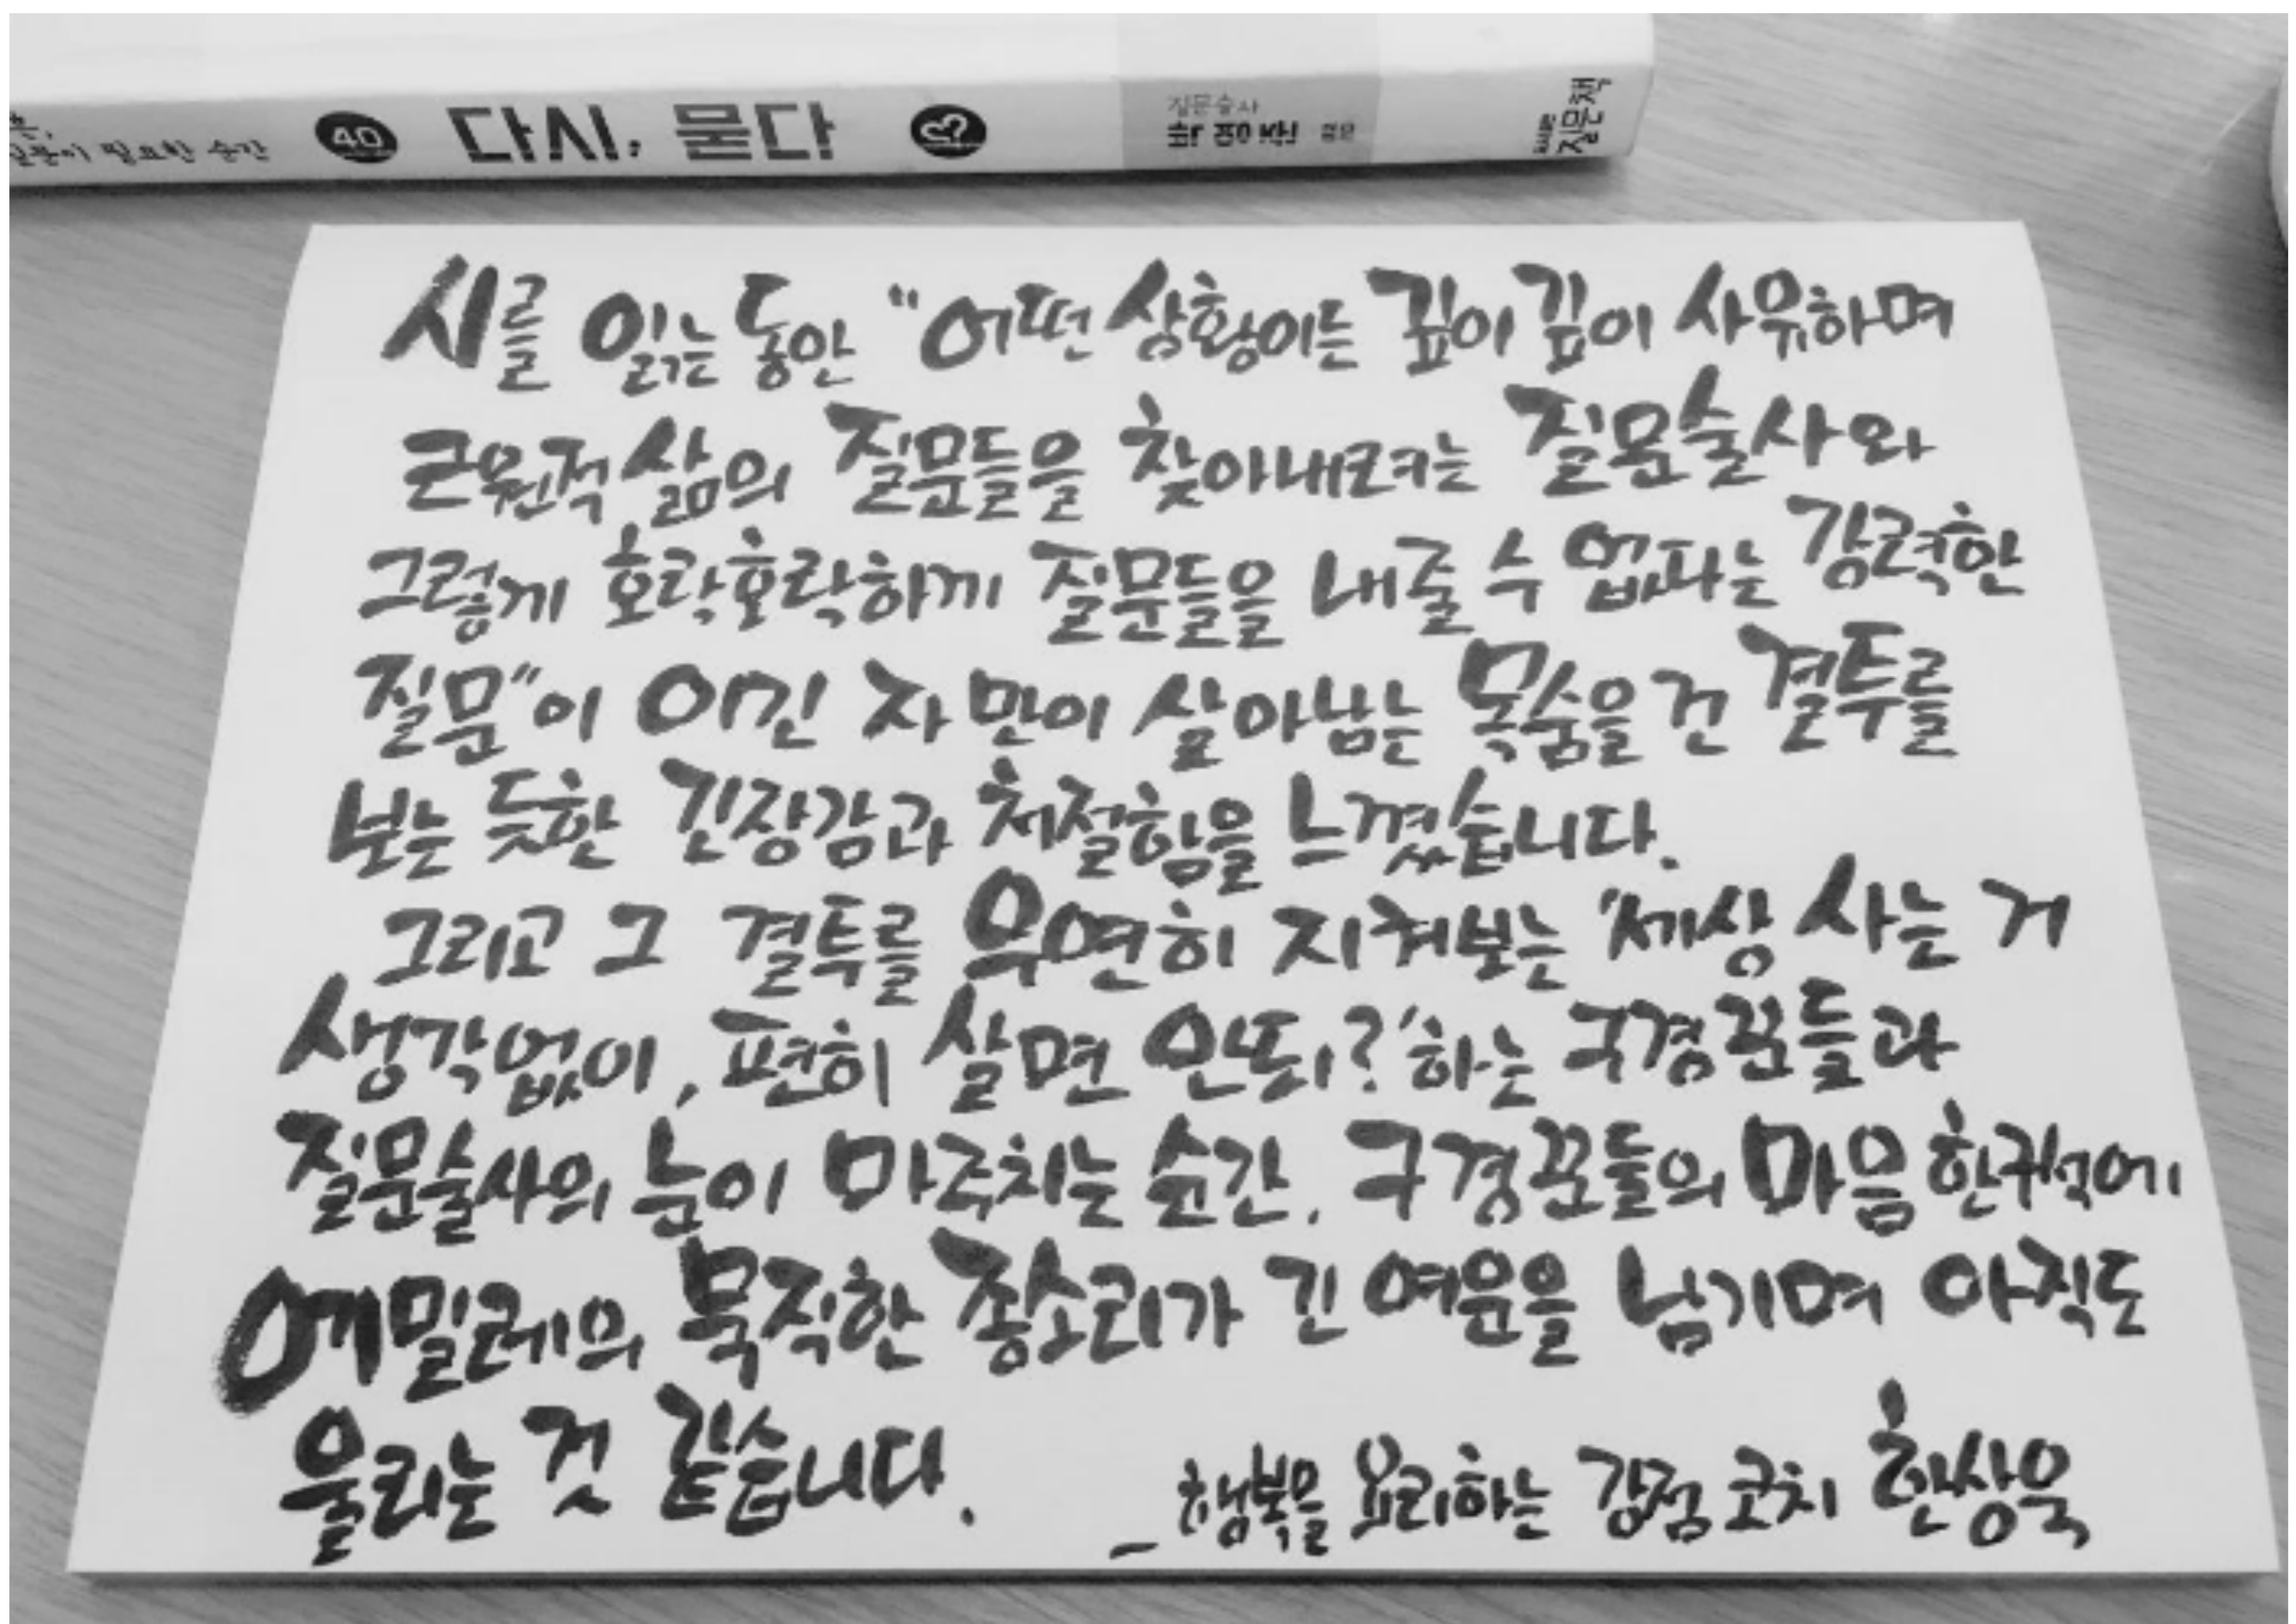 질문이 필요한 순간 40 다시, 묻다 질문술사 박영준
질문책
시를 읽는 동안 "어떤 상황이든 깊이 깊이 사유하며
근원적 삶의 질문들을 찾아내려는 질문술사와
그렇게 호락호락하게 질문들을 내줄 수 없다는 강력한
질문"이 이긴 자 만이 살아남는 목숨을 건 결투를
보는 듯한 긴장감과 처절함을 느꼈습니다.
그리고 그 결투를 우연히 지켜보는 '세상 사는 거
생각없이, 편히 살면 안돼?' 하는 구경꾼들과
질문술사의 눈이 마주치는 순간, 구경꾼들의 마음 한귀석에
에밀레의 묵직한 종소리가 긴 여운을 남기며 아직도
울리는 것 같습니다.
_행복을 요리하는 강점 코치 한상욱